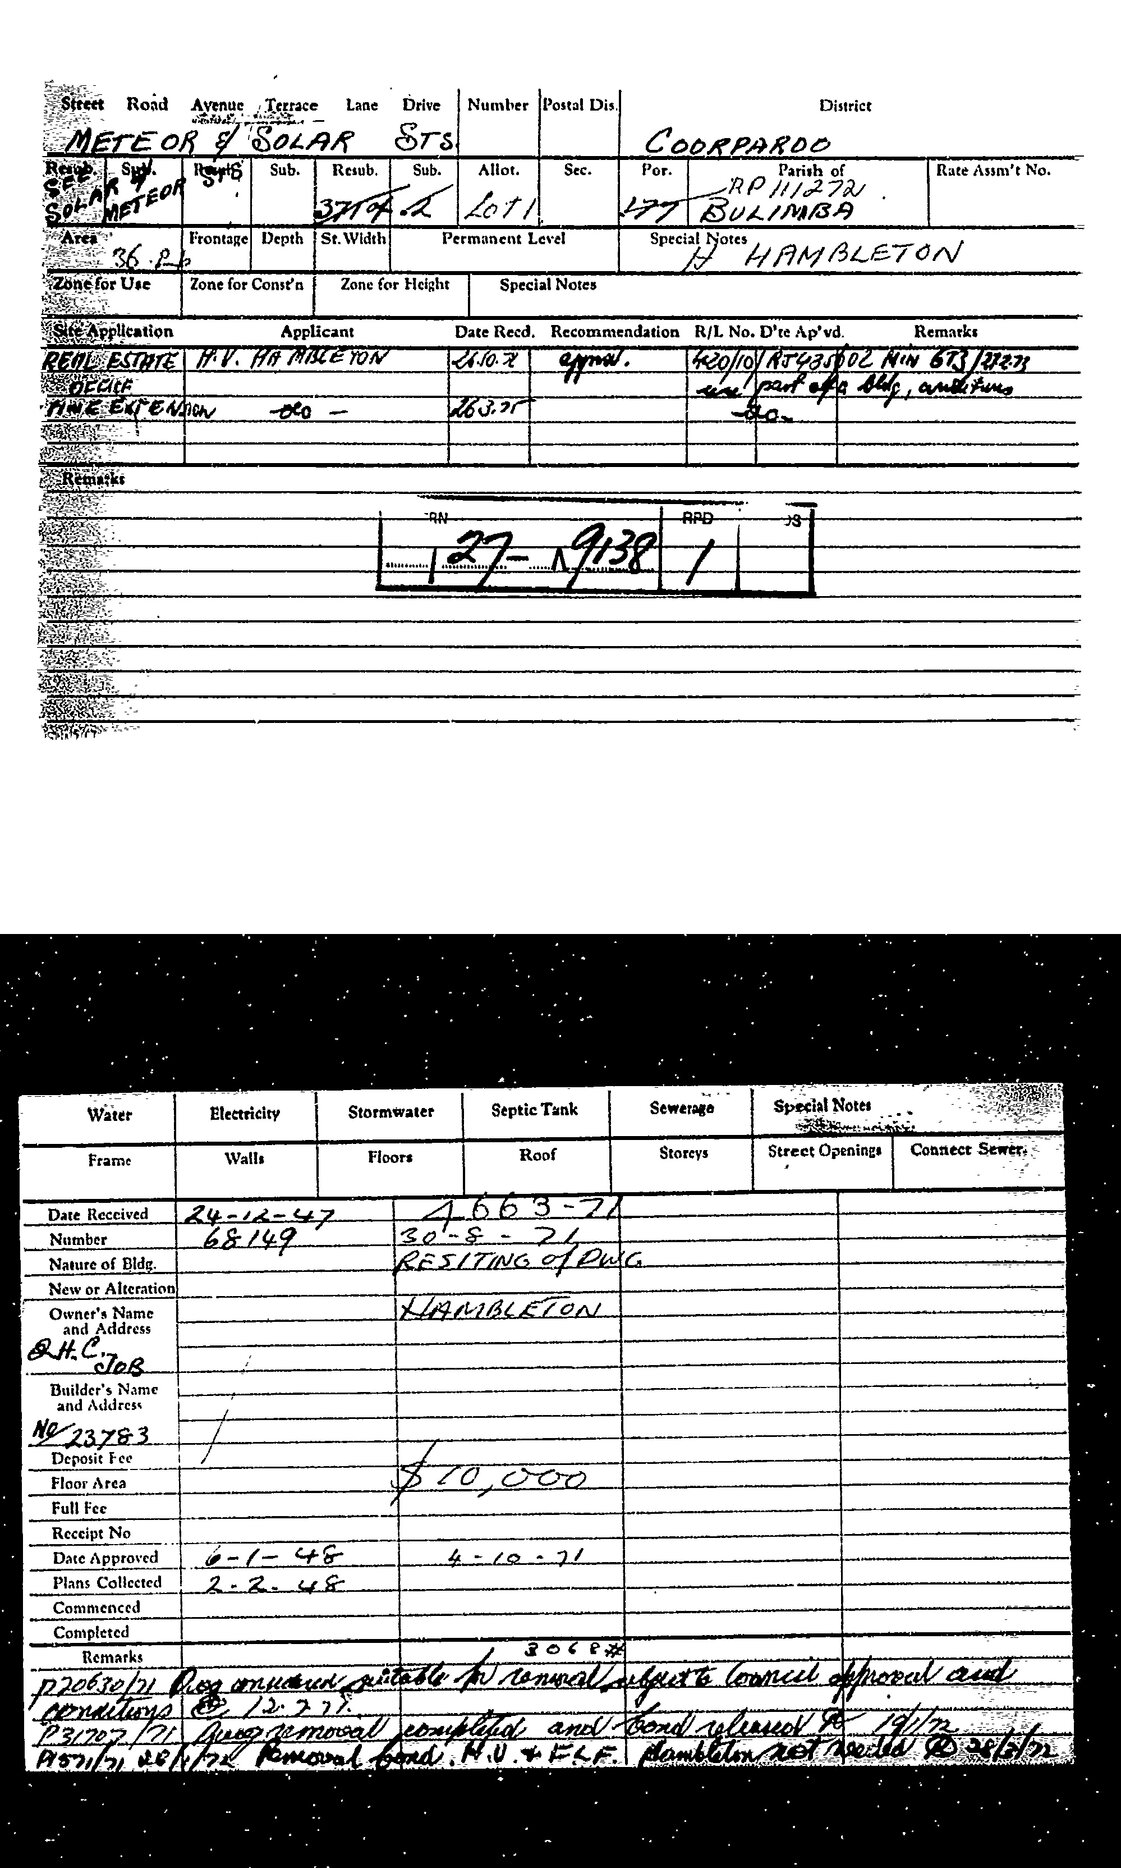 Street Road Avenue Terrace Lane Drive Number Postal Dis. District
METEOR & SOLAR STS COORPAROO
Resub. Sub. Resub. Sub. Resub. Sub. Allot. Sec. Por. Parish of Rate Assm't No.
SEE SOLAR & METEOR STS
37 2 Lot 1 177 RP 111272
BULIMBA
Area Frontage Depth St. Width Permanent Level Special Notes
36. H HAMBLETON
Zone for Use Zone for Const'n Zone for Height Special Notes
Site Application Applicant Date Recd. Recommendation R/L No. D'te Ap'vd. Remarks
REAL ESTATE H.V. HAMBLETON approval. 420/10/ MIN
OFFICE use part of a bldg, conditions
TIME EXTENSION -do- 26.3.75 -do-
Remarks
RN RPD
27- 9138 1
Water Electricity Stormwater Septic Tank Sewerage Special Notes
Frame Walls Floors Roof Storeys Street Openings Connect Sewer.
Date Received 24-12-47 4663-71
Number 68149 30-8-71
Nature of Bldg. RESITING of DWG
New or Alteration
Owner's Name HAMBLETON
and Address
Q.H.C.
JOB
Builder's Name
and Address
No 23783
Deposit Fee
Floor Area $10,000
Full Fee
Receipt No
Date Approved 6-1-48 4-10-71
Plans Collected 2-2-48
Commenced
Completed
Remarks 3068#
P20630/71 Dwg considered suitable for removal subject to Council approval and
conditions 12.7.71.
P31707/71 Dwg removal completed and bond released 19/1/72
28/1/72 Removal bond. H.V. & E.L.F. Hambleton not needed 28/3/72